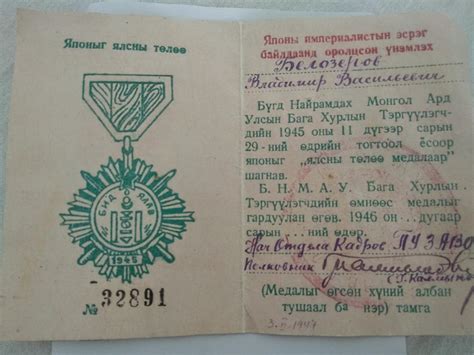 Японыг ялсны төлөө
БИД ЯЛАВ
1945
№ 32891
Японы империалистын эсрэг
байлдаанд оролцсон үнэмлэх
Белозеров
Владимир Васильевич
Бүгд Найрамдах Монгол Ард
Улсын Бага Хурлын Тэргүүлэгч-
дийн 1945 оны 11 дүгээр сарын
29-ний өдрийн тогтоол ёсоор
японыг „ялсны төлөө медалаар"
шагнав.
Б. Н. М. А. У. Бага Хурлын
Тэргүүлэгчдийн өмнөөс медалыг
гардуулан өгөв. 1946 он ..дугаар
сарын ... ний өдөр.
Нач Отдела Кадров
Полковник
(Медалыг өгсөн хүний албан
тушаал ба нэр) тамга
1947